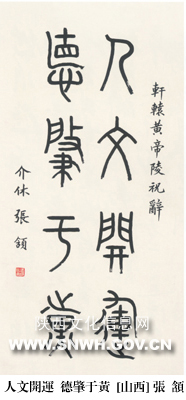 軒轅黃帝陵祝辭
人文開運
德肇于黃
介休 張頷
陕西文化信息网
WWW.SNWH.GOV.CN
人文開運 德肇于黃 [山西] 張 頷